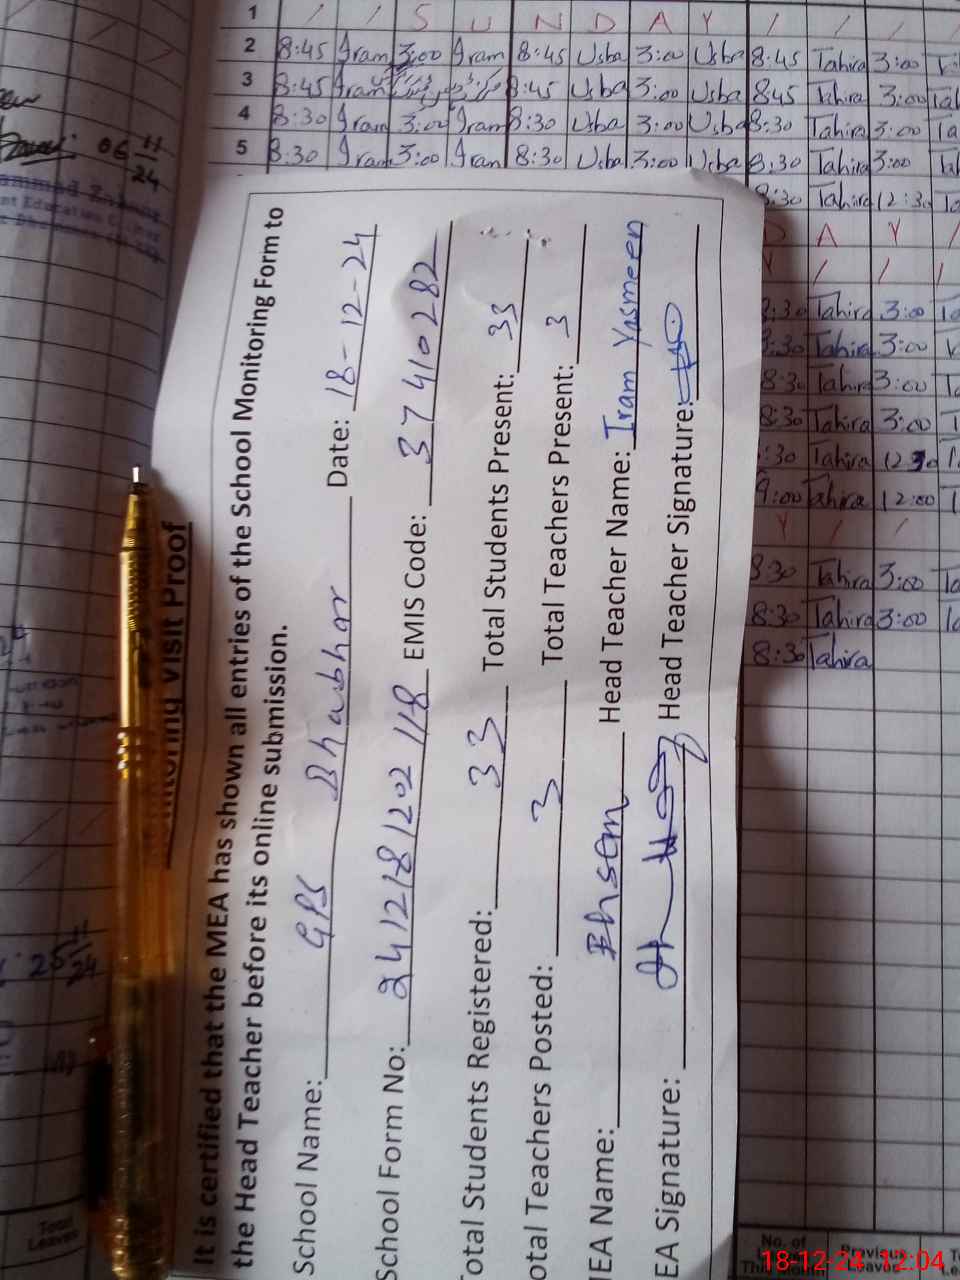 1 / / S U N D A Y / / /
2 8:45 Iram 3:00 Iram 8:45 Usba 3:00 Usba 8:45 Tahira 3:00
3 8:45 Iram 8:45 Usba 3:00 Usba 8:45 Tahira 3:00
4 8:30 Iram 3:00 Iram 8:30 Usba 3:00 Usba 8:30 Tahira 3:00
5 8:30 Iram 3:00 Iram 8:30 Usba 3:00 Usba 8:30 Tahira 3:00
8:30 Tahira 12:30
D A Y /
Y / / /
8:30 Tahira 3:00
8:30 Tahira 3:00
8:30 Tahira 3:00
8:30 Tahira 3:00
:30 Tahira 12:30
9:00 Tahira 12:00
Y / /
8:30 Tahira 3:00
8:30 Tahira 3:00
8:30 Tahira
06 11/24
Visit Proof
It is certified that the MEA has shown all entries of the School Monitoring Form to
the Head Teacher before its online submission.
School Name: GPS Bhabhar Date: 18-12-24
School Form No: 2412181202118 EMIS Code: 37410282
otal Students Registered: 33 Total Students Present: 33
otal Teachers Posted: 3 Total Teachers Present: 3
EA Name: Ehsem Head Teacher Name: Iram Yasmeen
EA Signature: Head Teacher Signature:
25 11/24
Total
Leaves
No. of
Previous
Leaves
18-12-24 12:04